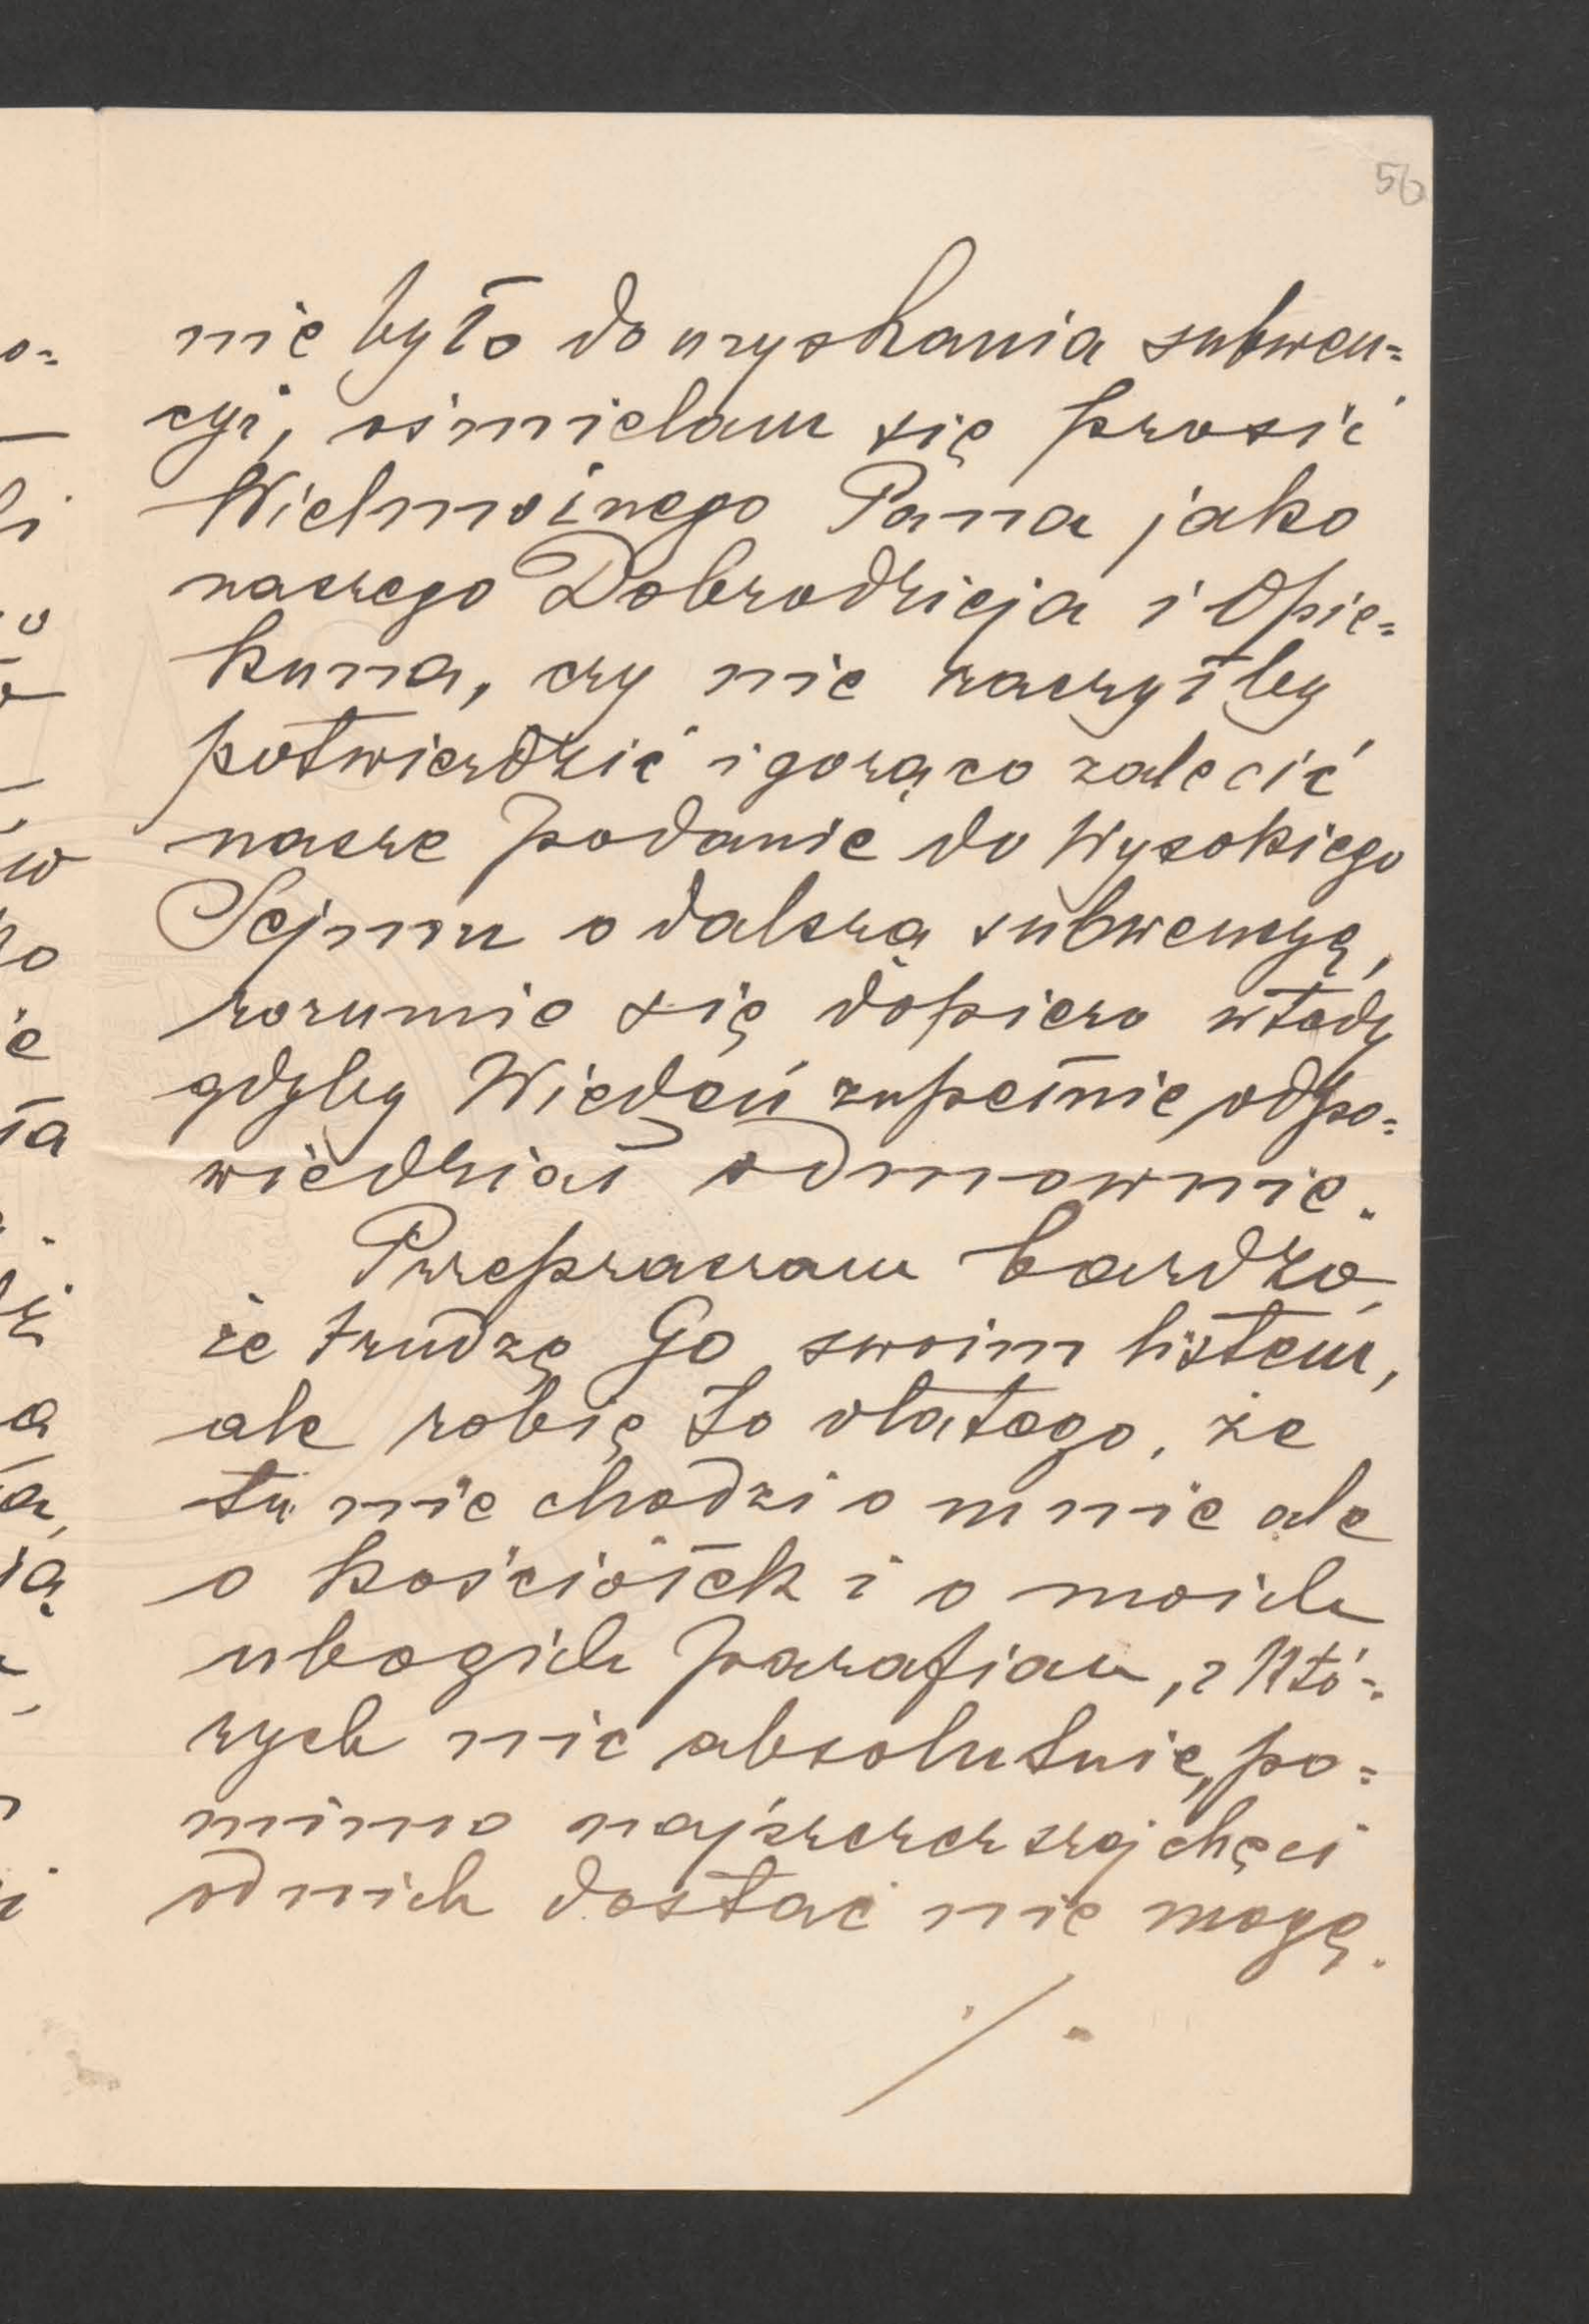 56
nie było do uzyskania subwen=
cyi, ośmielam się prosić
Wielmożnego Pana jako
naszego Dobrodzieja i Opie=
kuna, czy nie raczyłby
potwierdzić i gorąco zalecić
nasze podanie do Wysokiego
Sejmu o dalszą subwencyę,
rozumie się dopiero wtedy
gdyby Wiedeń zupełnie odpo=
wiedział odmownie.
Przepraszam bardzo,
że trudzę Go swoim listem,
ale robię to dlatego, że
tu nie chodzi o mnie ale
o kościółek i o moich
ubogich parafian, z któ=
rych nic absolutnie, po=
mimo najszczerszej chęci
od nich dostać nie mogę.
./.